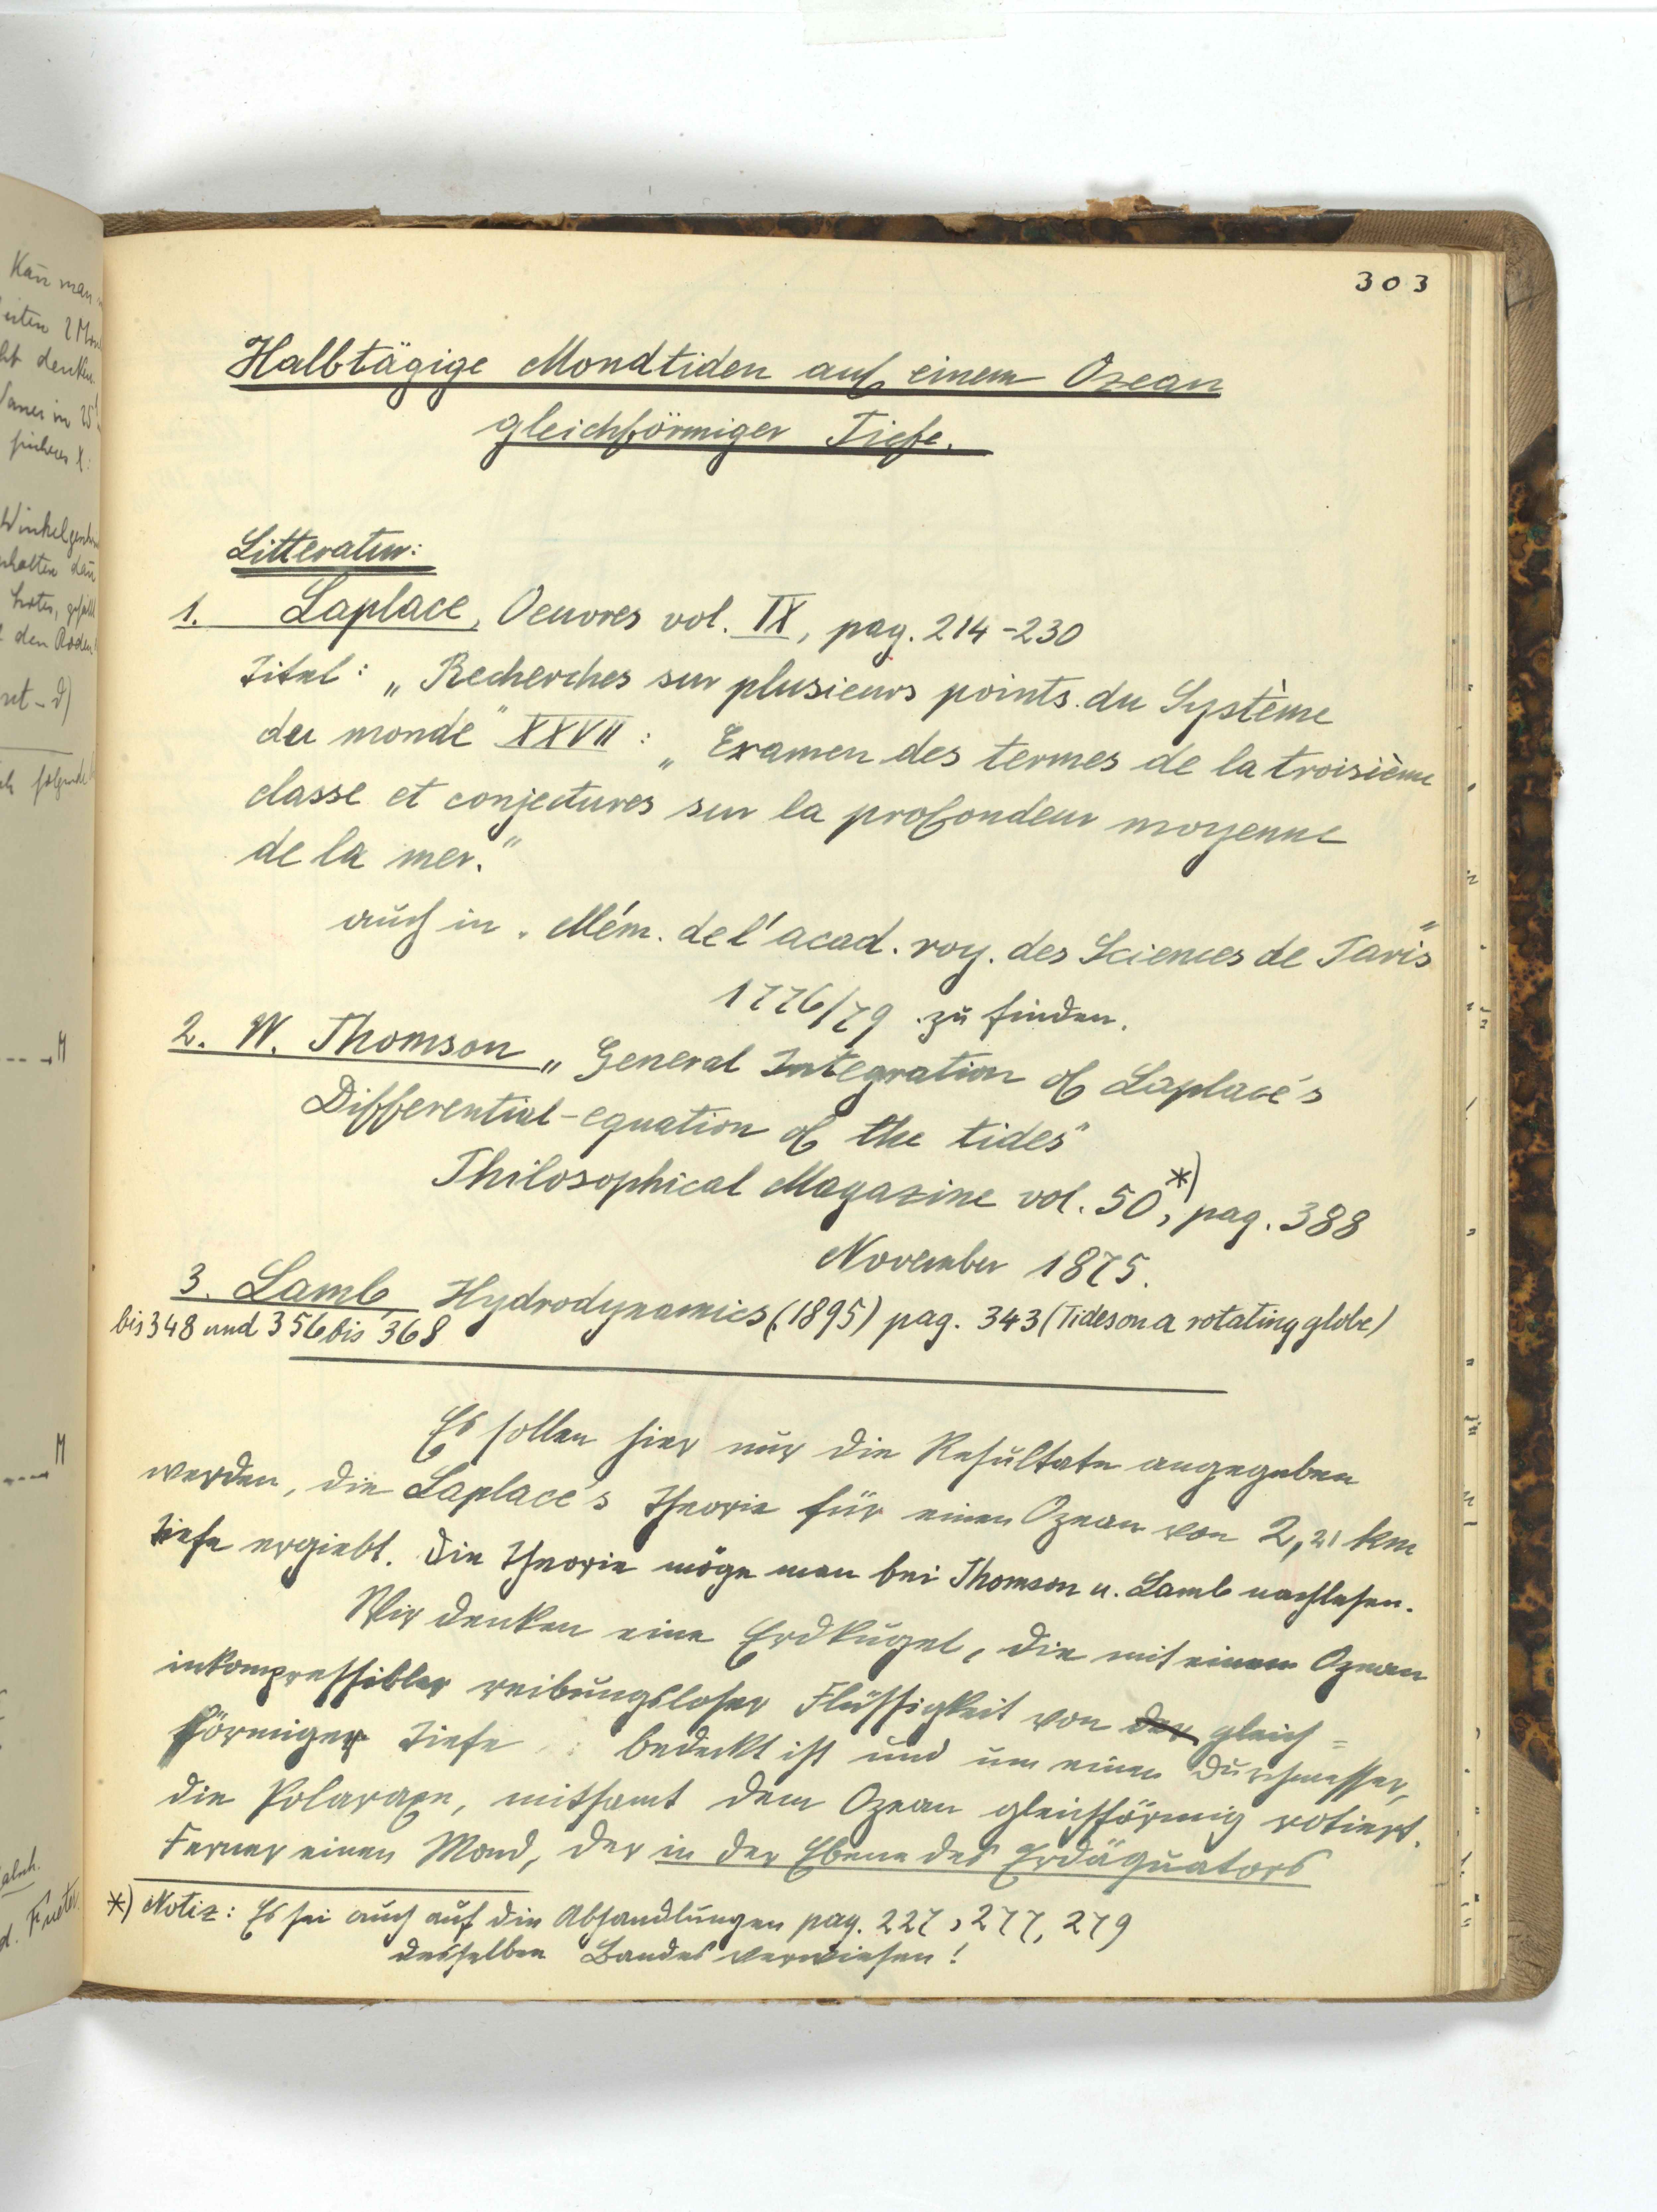 303
Halbtägige Mondtiden auf einem Ozean
gleichförmiger Tiefe.
Litteratur:
1. Laplace, Oeuvres vol. IX, pag. 214-230
Titel: „Recherches sur plusieurs points du Système
du monde" XXVII: „Examen des termes de la troisième
classe et conjectures sur la profondeur moyenne
de la mer."
auch in „Mém. de l'acad. roy. des Sciences de Paris"
1776/79 zu finden.
2. W. Thomson „General Integration of Laplace's
Differential-equation of the tides"
Philosophical Magazine vol. 50,*) pag. 388
November 1875.
3. Lamb, Hydrodynamics (1895) pag. 343 (Tides on a rotating globe)
bis 348 und 356 bis 368
Es sollen hier nur die Resultate angegeben
werden, die Laplace's Theorie für einen Ozean von 2,21 km
Tiefe ergiebt. Die Theorie möge man bei Thomson u. Lamb nachlesen.
Wir denken eine Erdkugel, die mit einem Ozean
inkompressibler reibungsloser Flüssigkeit von der gleich=
förmiger Tiefe bedeckt ist und um einen Durchmesser,
die Polaraxe, mitsamt dem Ozean gleichförmig rotiert.
Ferner einen Mond, der in der Ebene des Erdäquators
*) Notiz: Es sei auch auf die Abhandlungen pag. 227, 277, 279
desselben Bandes verwiesen!
Kan̄ man
denken
Winkel
dan̄
den Boden
M
M